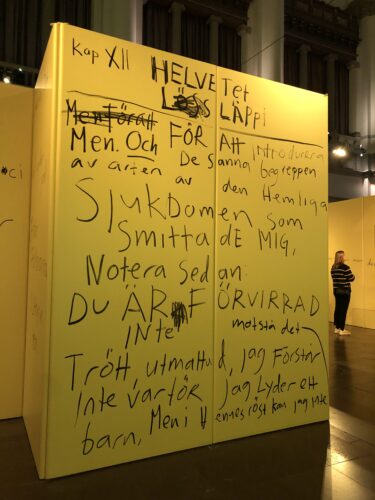 Kap XII HELVETet
LÄPPi
Men. Och FÖR Att introducera
av arten av De Sanna begreppen
den Hemliga
SjukDomen som
SmittadE MIG,
Notera Sedan.
DU ÄR FÖRVIRRAD
INte motstå det
Trött, utmattad, jag Förstår
Inte varför jag Lyder ett
barn, Men i Hennes röst kan jag inte